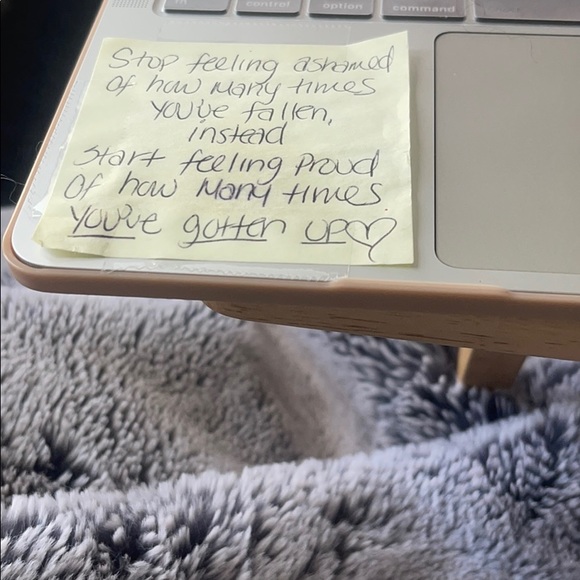 fn control option command
Stop feeling ashamed
of how many times
you've fallen,
instead
Start feeling Proud
Of how Many times
you've gotten UP♡